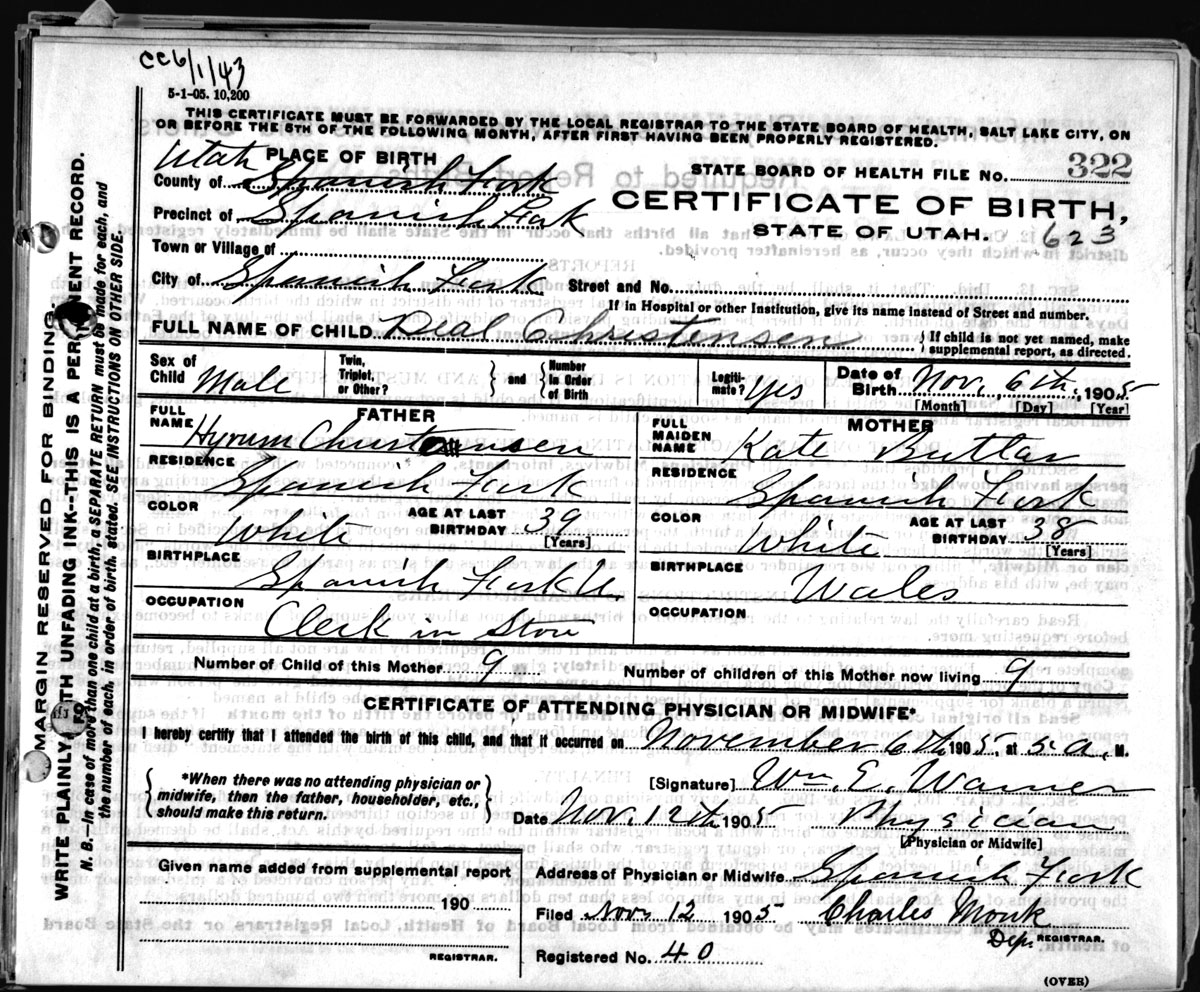 cc6/1/43
5-1-05. 10,200
THIS CERTIFICATE MUST BE FORWARDED BY THE LOCAL REGISTRAR TO THE STATE BOARD OF HEALTH, SALT LAKE CITY, ON
OR BEFORE THE 5TH OF THE FOLLOWING MONTH, AFTER FIRST HAVING BEEN PROPERLY REGISTERED.
Utah PLACE OF BIRTH
STATE BOARD OF HEALTH FILE NO. 322
County of Spanish Fork
CERTIFICATE OF BIRTH,
Precinct of Spanish Fork
STATE OF UTAH. 623
Town or Village of
City of Spanish Fork Street and No.
If in Hospital or other Institution, give its name instead of Street and number.
FULL NAME OF CHILD Deal Christensen { If child is not yet named, make
supplemental report, as directed.
Sex of Child Male Twin, Triplet, or Other? } and { Number in Order of Birth Legiti- mate? Yes Date of Birth Nov. 6th, 1905
[Month] [Day] [Year]
FATHER
FULL NAME Hyrum Christensen
RESIDENCE Spanish Fork
COLOR White AGE AT LAST BIRTHDAY 39 [Years]
BIRTHPLACE Spanish Fork U
OCCUPATION Clerk in Store
MOTHER
FULL MAIDEN NAME Kate Buttar
RESIDENCE Spanish Fork
COLOR White AGE AT LAST BIRTHDAY 38 [Years]
BIRTHPLACE Wales
OCCUPATION
Number of Child of this Mother 9 Number of children of this Mother now living 9
CERTIFICATE OF ATTENDING PHYSICIAN OR MIDWIFE*
I hereby certify that I attended the birth of this child, and that it occurred on November 6th 1905, at 5 a. M.
{ *When there was no attending physician or
midwife, then the father, householder, etc.,
should make this return. }
[Signature] Wm. E. Warner
Date Nov. 12th 1905 Physician
[Physician or Midwife]
Given name added from supplemental report
190
REGISTRAR.
Address of Physician or Midwife Spanish Fork
Filed Nov. 12 1905 Charles Monk
Dep. REGISTRAR.
Registered No. 40
(OVER)
MARGIN RESERVED FOR BINDING.
WRITE PLAINLY WITH UNFADING INK--THIS IS A PERMANENT RECORD.
N. B.--In case of more than one child at a birth, a SEPARATE RETURN must be made for each, and
the number of each, in order of birth, stated. SEE INSTRUCTIONS ON OTHER SIDE.